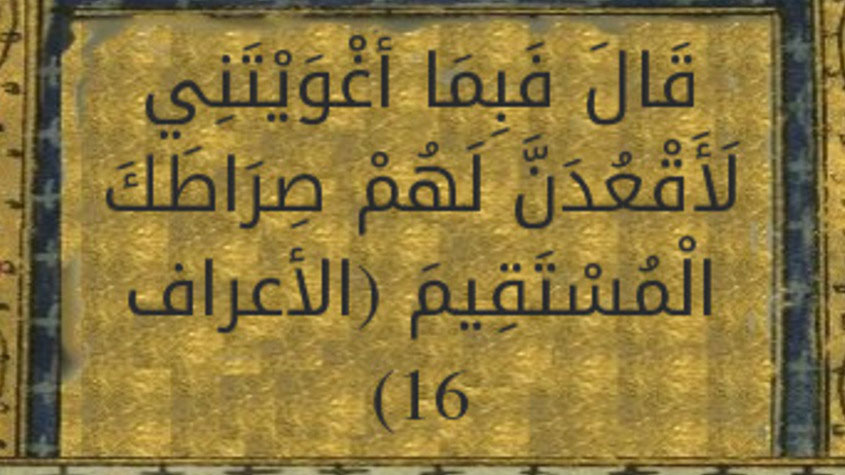 قَالَ فَبِمَا أغْوَيْتَنِي
لَأَقْعُدَنَّ لَهُمْ صِرَاطَكَ
الْمُسْتَقِيمَ (الأعراف
16)